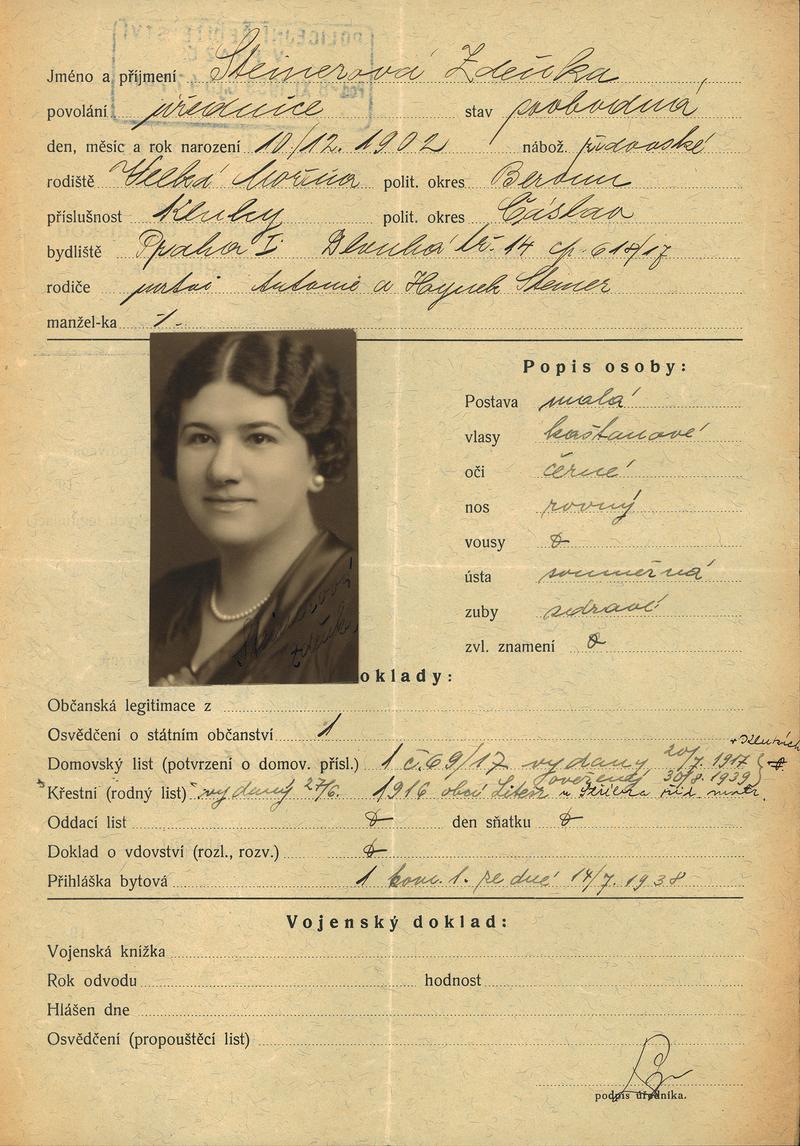 Jméno a příjmení Steinerová Zdeňka
povolání úřednice stav svobodná
den, měsíc a rok narození 10/12. 1902 nábož. židovské
rodiště Velká polit. okres Beroun
příslušnost Kluky polit. okres Čáslav
bydliště Praha I. Dlouhá tř. 14 čp. 614/17
rodiče Antonie a Hynek Steiner
manžel-ka -/-
Popis osoby:
Postava malá
vlasy kaštanové
oči černé
nos rovný
vousy
ústa souměrná
zuby zdravé
zvl. znamení
Steinerová
Zdeňka
oklady:
Občanská legitimace z
Osvědčení o státním občanství 1
Domovský list (potvrzení o domov. přísl.) 1 č. 69/17 vydaný 20/7. 1917
Křestní (rodný list) vydaný 27/6. 1916 obcí Liteň ověřený 30/8. 1939
Oddací list den sňatku
Doklad o vdovství (rozl., rozv.)
Přihláška bytová 1 kom. 1. ze dne 14/7. 1938
Vojenský doklad:
Vojenská knížka
Rok odvodu hodnost
Hlášen dne
Osvědčení (propouštěcí list)
podpis úředníka.